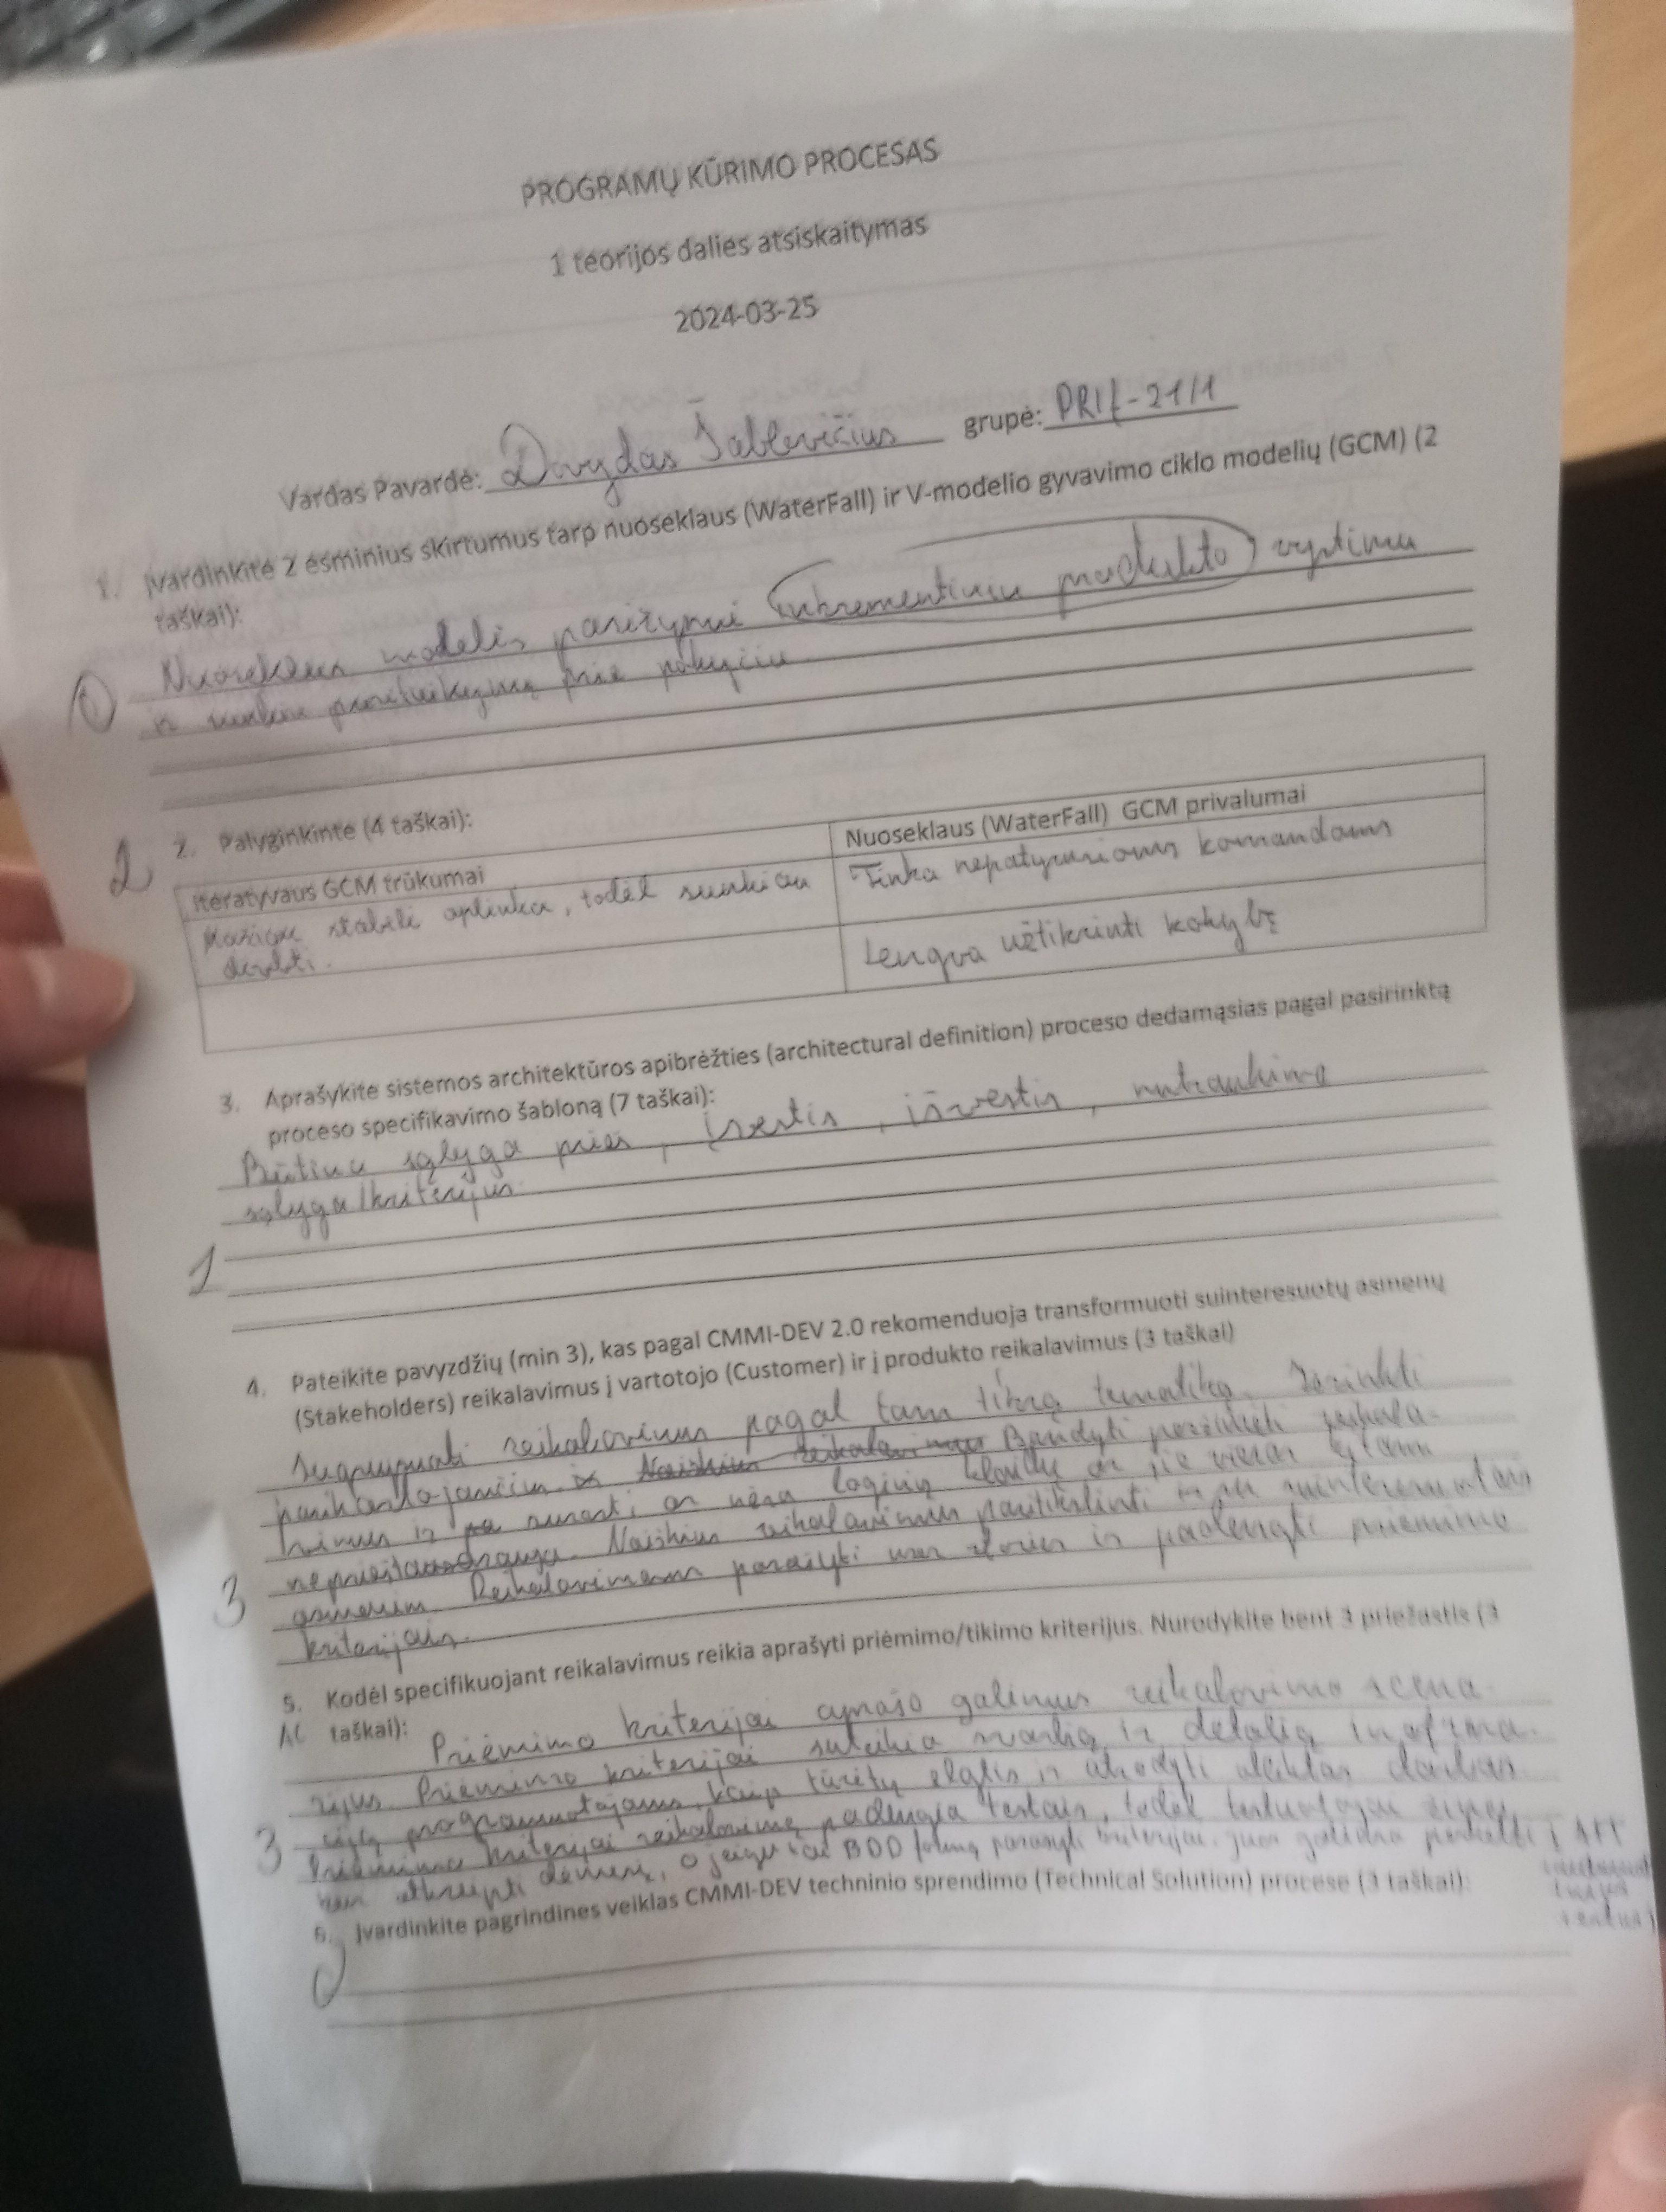 PROGRAMŲ KŪRIMO PROCESAS
1 teorijos dalies atsiskaitymas
2024-03-25
Vardas Pavardė: Dovydas grupė: PRIf-21/1
1. Įvardinkite 2 esminius skirtumus tarp nuoseklaus (WaterFall) ir V-modelio gyvavimo ciklo modelių (GCM) (2
taškai):
Nuoseklus modelis pasižymi inkrementiniu produkto vystimu
ir sunkiu prisitaikymu prie pokyčių
2
2. Palyginkinte (4 taškai):
Iteratyvaus GCM trūkumai
Nuoseklaus (WaterFall) GCM privalumai
Mažiau stabili aplinka, todėl sunkiau
dirbti.
Tinka nepatyrusioms komandoms
Lengva užtikrinti kokybę
3. Aprašykite sistemos architektūros apibrėžties (architectural definition) proceso dedamąsias pagal pasirinktą
proceso specifikavimo šabloną (7 taškai):
Būtina sąlyga prieš, įvestis, išvestis, nutraukimo
sąlyga/kriterijus
1
4. Pateikite pavyzdžių (min 3), kas pagal CMMI-DEV 2.0 rekomenduoja transformuoti suinteresuotų asmenų
(Stakeholders) reikalavimus į vartotojo (Customer) ir į produkto reikalavimus (3 taškai)
Sugrupuoti reikalavimus pagal tam tikrą tematiką. Surinkti
pasikartojančius. Bandyti peržiūrėti reikala-
vimus ir surasti, ar nėra loginių klaidų, ar jie vienas kitam
neprieštarauja. Neaiškius reikalavimus pasitikslinti su suinteresuotais
asmenim. Reikalavimams parašyti user stories ir padengti priėmimo
kriterijais.
3
5. Kodėl specifikuojant reikalavimus reikia aprašyti priėmimo/tikimo kriterijus. Nurodykite bent 3 priežastis (3
AC taškai):
Priėmimo kriterijai aprašo galimus reikalavimo scena-
rijus. Priėmimo kriterijai suteikia svarbią ir detalią informa-
ciją programuotojams, kaip turėtų elgtis ir atrodyti atliktas darbas.
Priėmimo kriterijai reikalavimą padengia testais, todėl testuotojai žinos,
kur atkreipti dėmesį, o jeigu dar BDD formą parašyti kriterijai, juos galima perkelti į
3
6. Įvardinkite pagrindines veiklas CMMI-DEV techninio sprendimo (Technical Solution) procese (3 taškai):